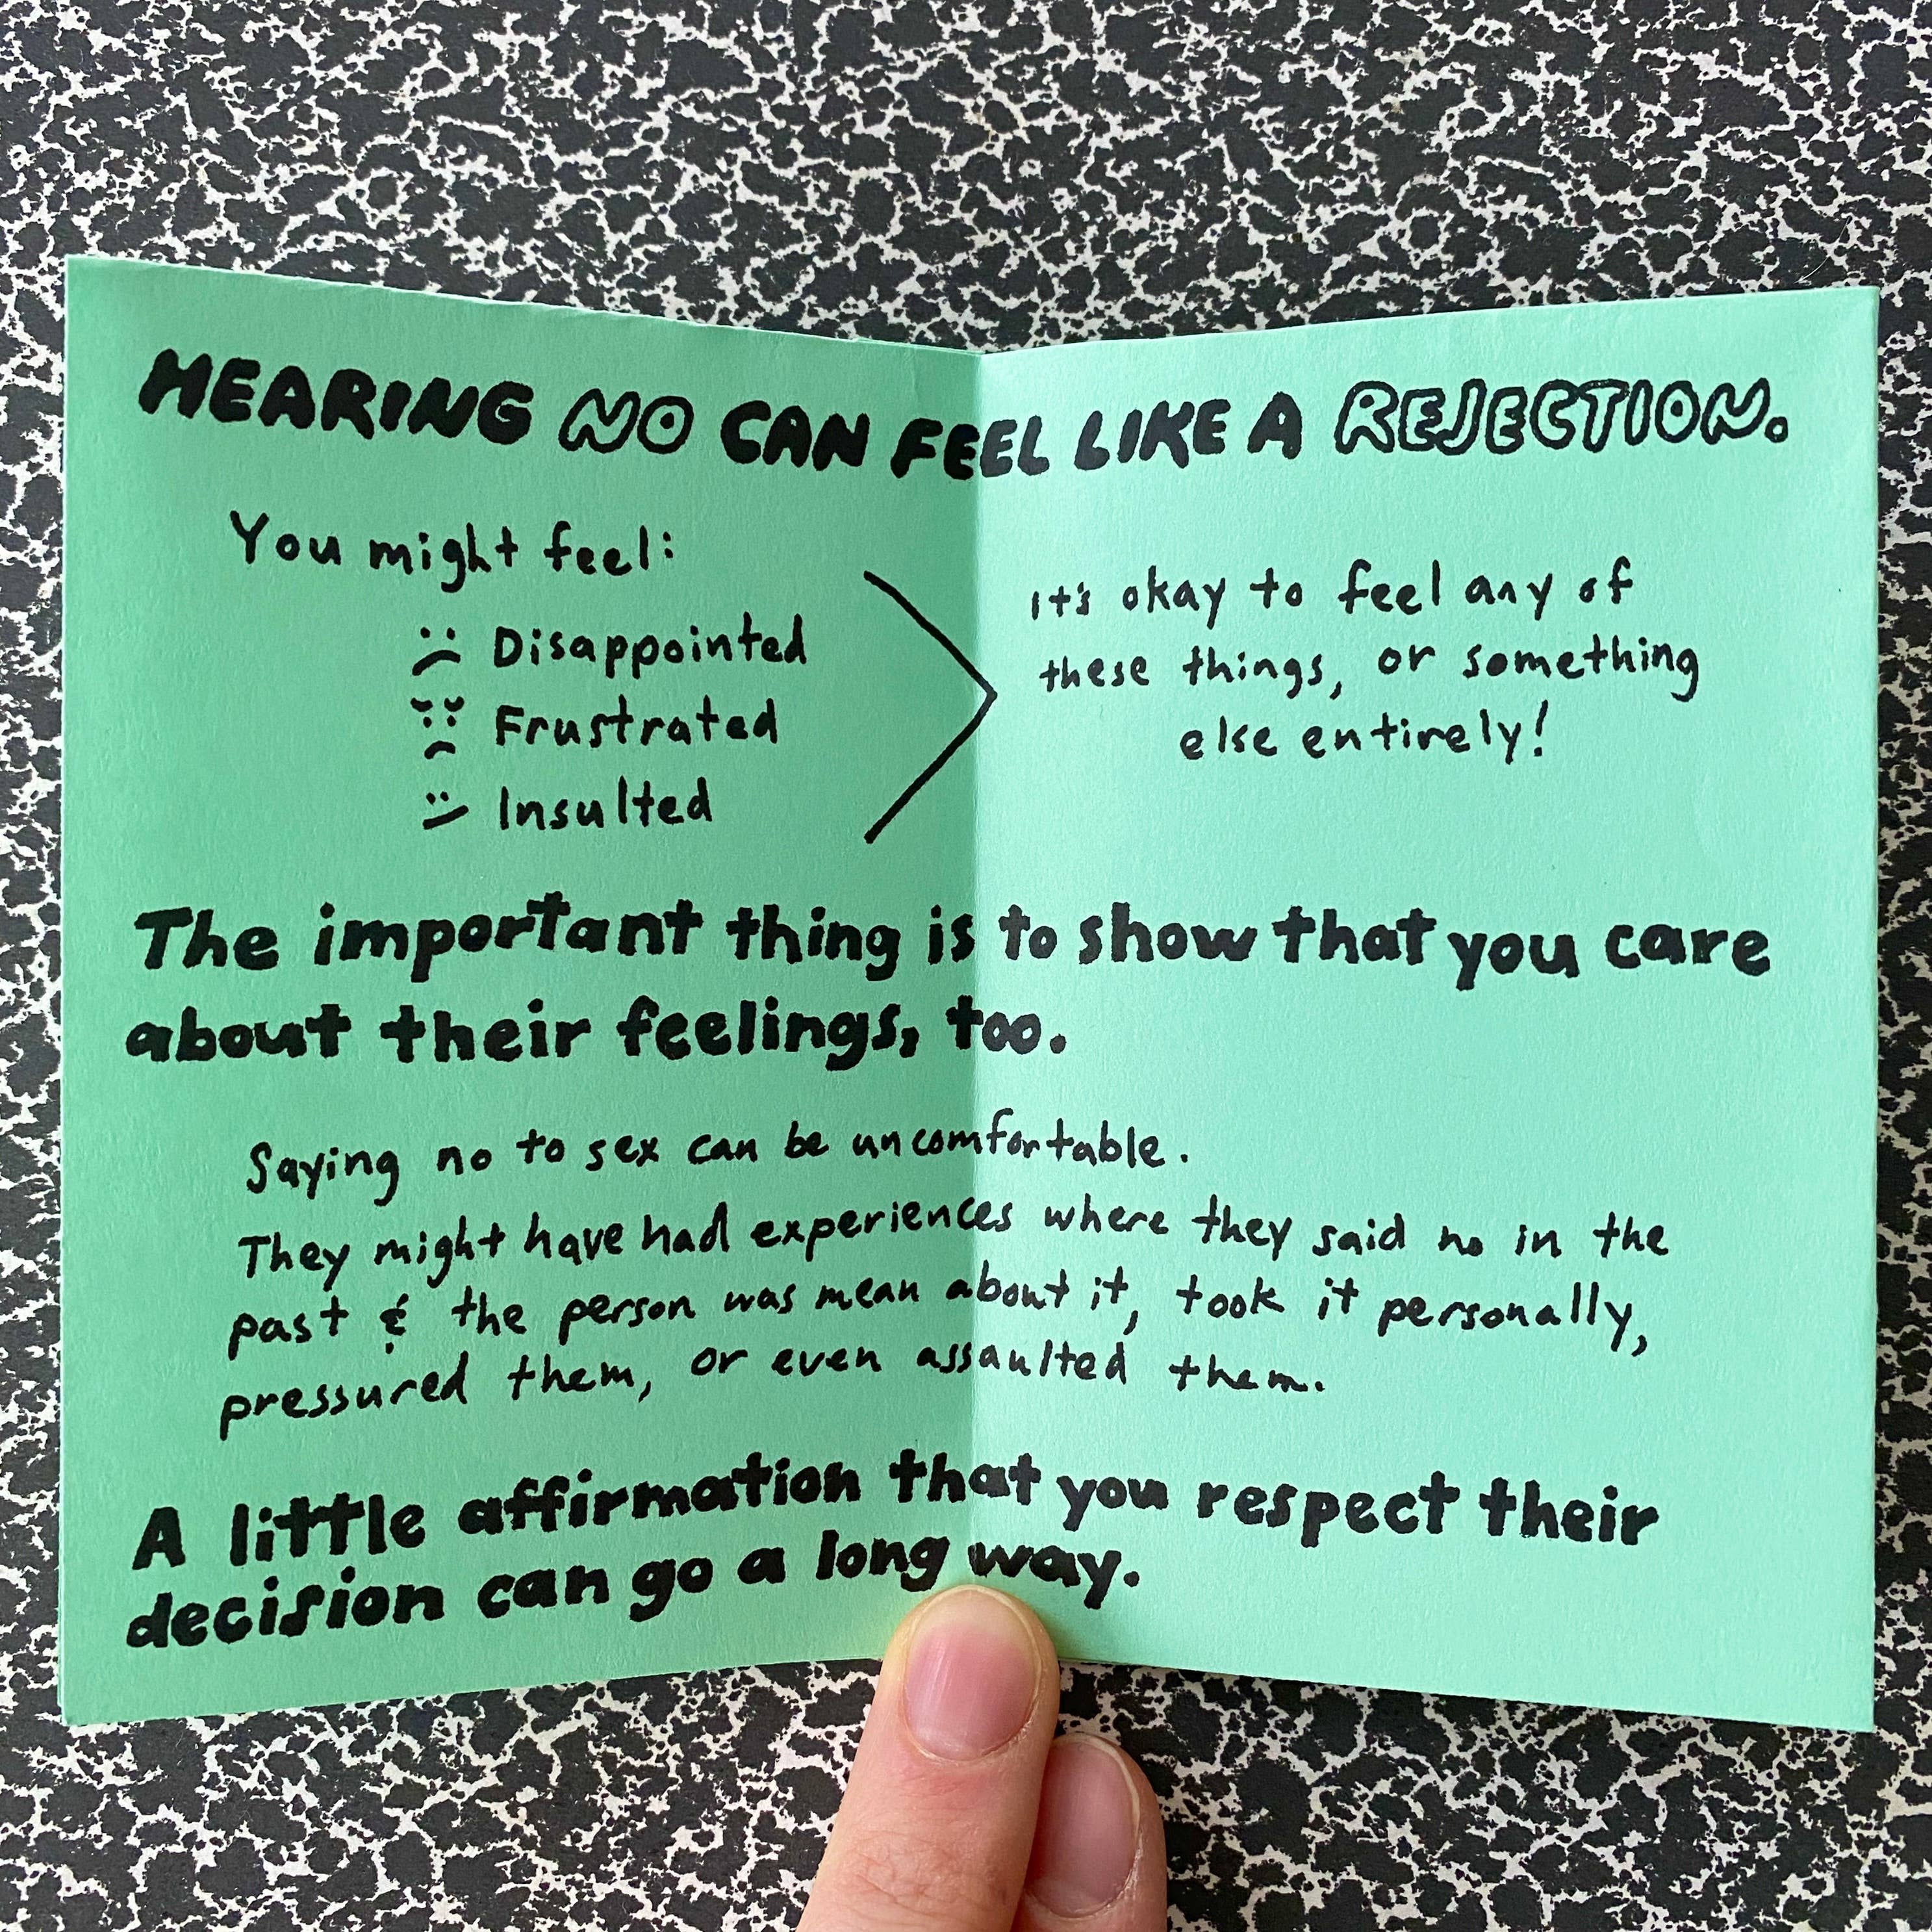 HEARING NO CAN FEEL LIKE A REJECTION.
You might feel:
Disappointed
Frustrated
Insulted
It's okay to feel any of
these things, or something
else entirely!
The important thing is to show that you care
about their feelings, too.
Saying no to sex can be uncomfortable.
They might have had experiences where they said no in the
past & the person was mean about it, took it personally,
pressured them, or even assaulted them.
A little affirmation that you respect their
decision can go a long way.